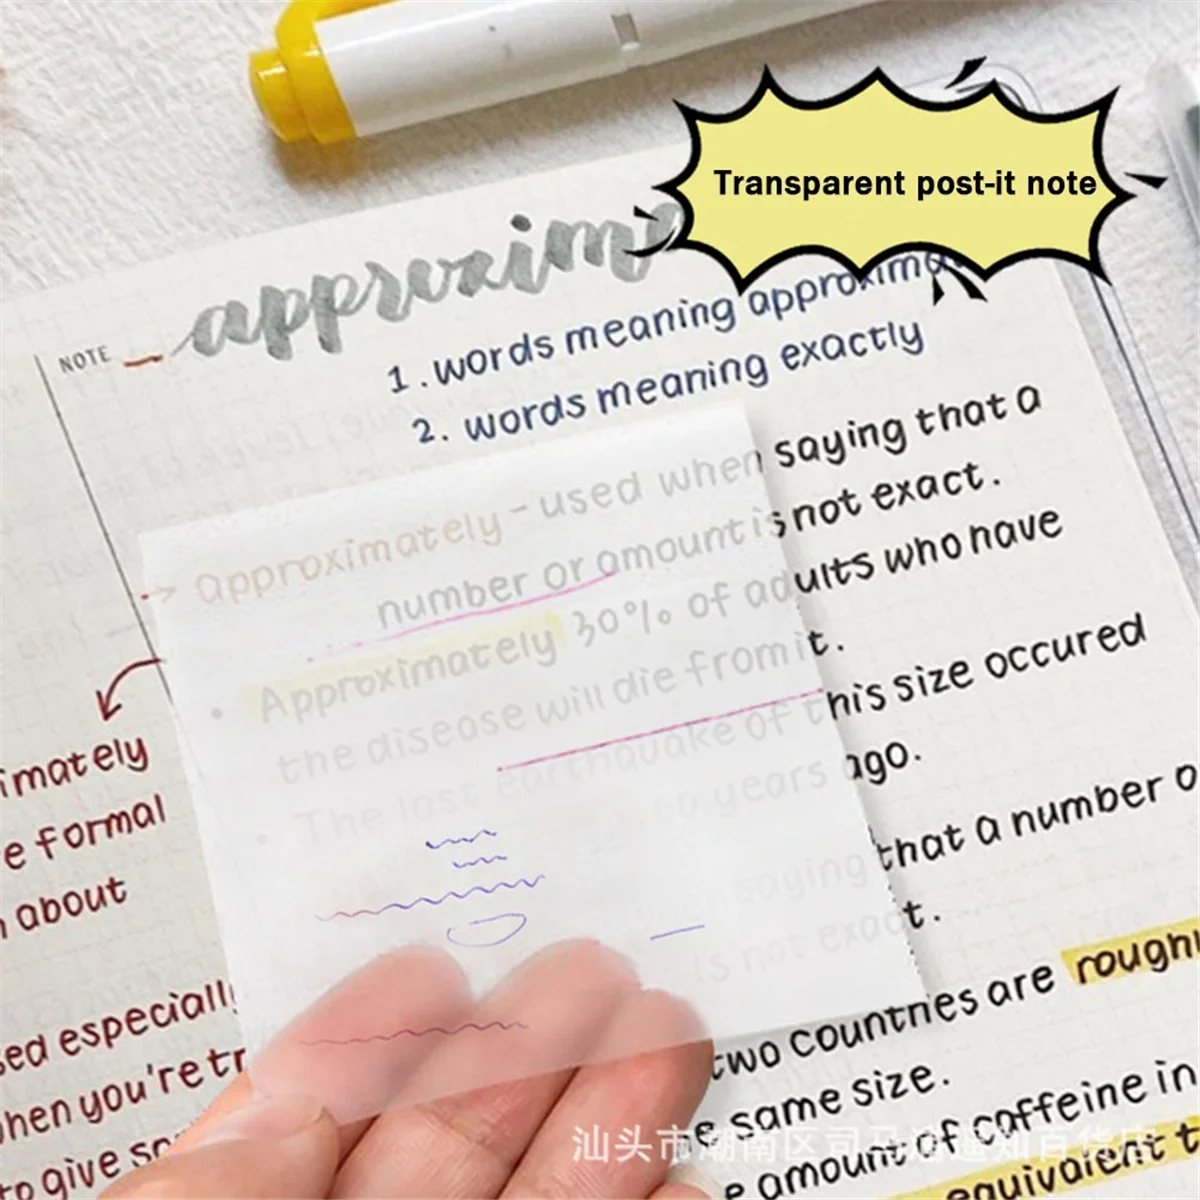 Transparent post-it note
NOTE approxim
1. words meaning approxima
2. words meaning exactly
→ approximately - used when saying that a
number or amount is not exact.
• Approximately 30% of adults who have
the disease will die from it.
• The last earthquake of this size occured
60 years ago.
saying that a number o
is not exact.
two countries are roughl
e same size.
e amount of caffeine in
equivalent t
imately
e formal
about
sed especially
when you're tr
to give so
汕头市潮南区司马浦通知百货店